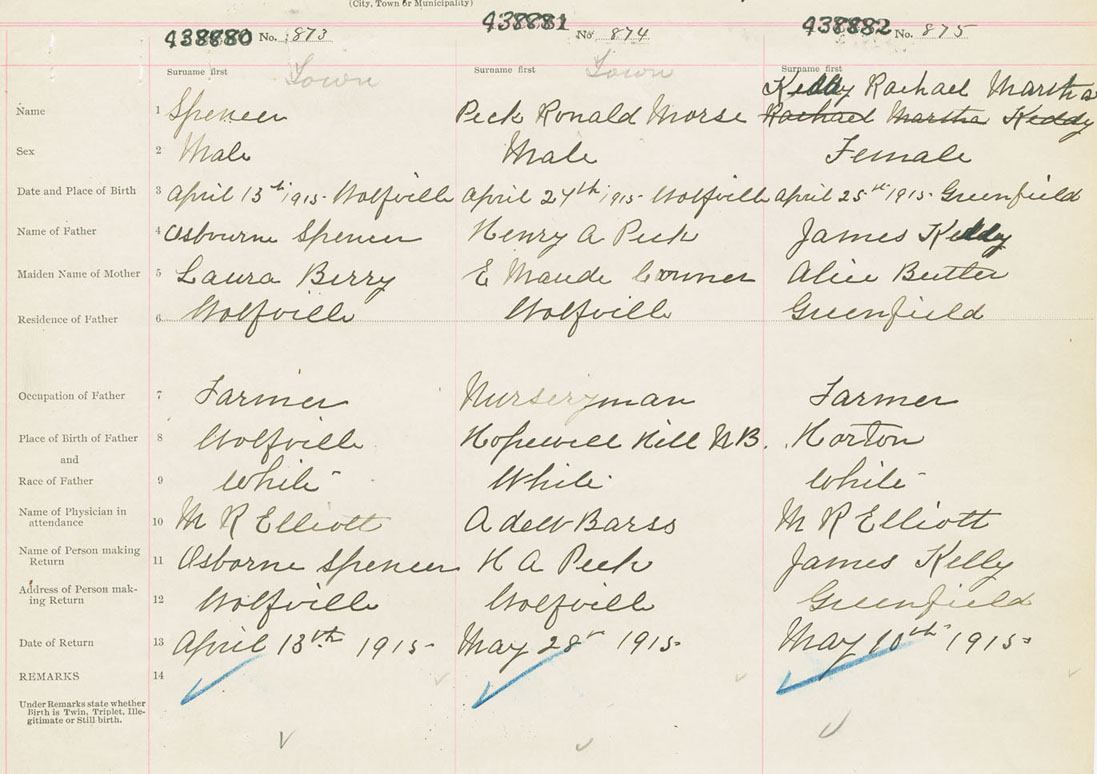 (City, Town or Municipality)
438880 No. 873 438881 No 874 438882 No. 875
Surname first Town Surname first Town Surname first
Kelly Rachael Martha
Name 1 Spencer Peck Ronald Morse Rachael Martha Keddy
Sex 2 Male Male Female
Date and Place of Birth 3 April 13th 1915- Wolfville April 24th 1915- Wolfville April 25th 1915- Greenfield
Name of Father 4 Osbourne Spencer Henry A Peck James Kelly
Maiden Name of Mother 5 Laura Berry E Maude Conner Alice Butler
Residence of Father 6 Wolfville Wolfville Greenfield
Occupation of Father 7 Farmer Nurseryman Farmer
Place of Birth of Father 8 Wolfville Hopewell Hill N.B. Horton
and
Race of Father 9 White White White
Name of Physician in attendance 10 M R Elliott A deW Barss M R Elliott
Name of Person making Return 11 Osborne Spencer H A Peck James Kelly
Address of Person mak-ing Return 12 Wolfville Wolfville Greenfield
Date of Return 13 April 13th 1915- May 28 1915- May 10th 1915-
REMARKS 14
Under Remarks state whether
Birth is Twin, Triplet, Ille-
gitimate or Still birth.